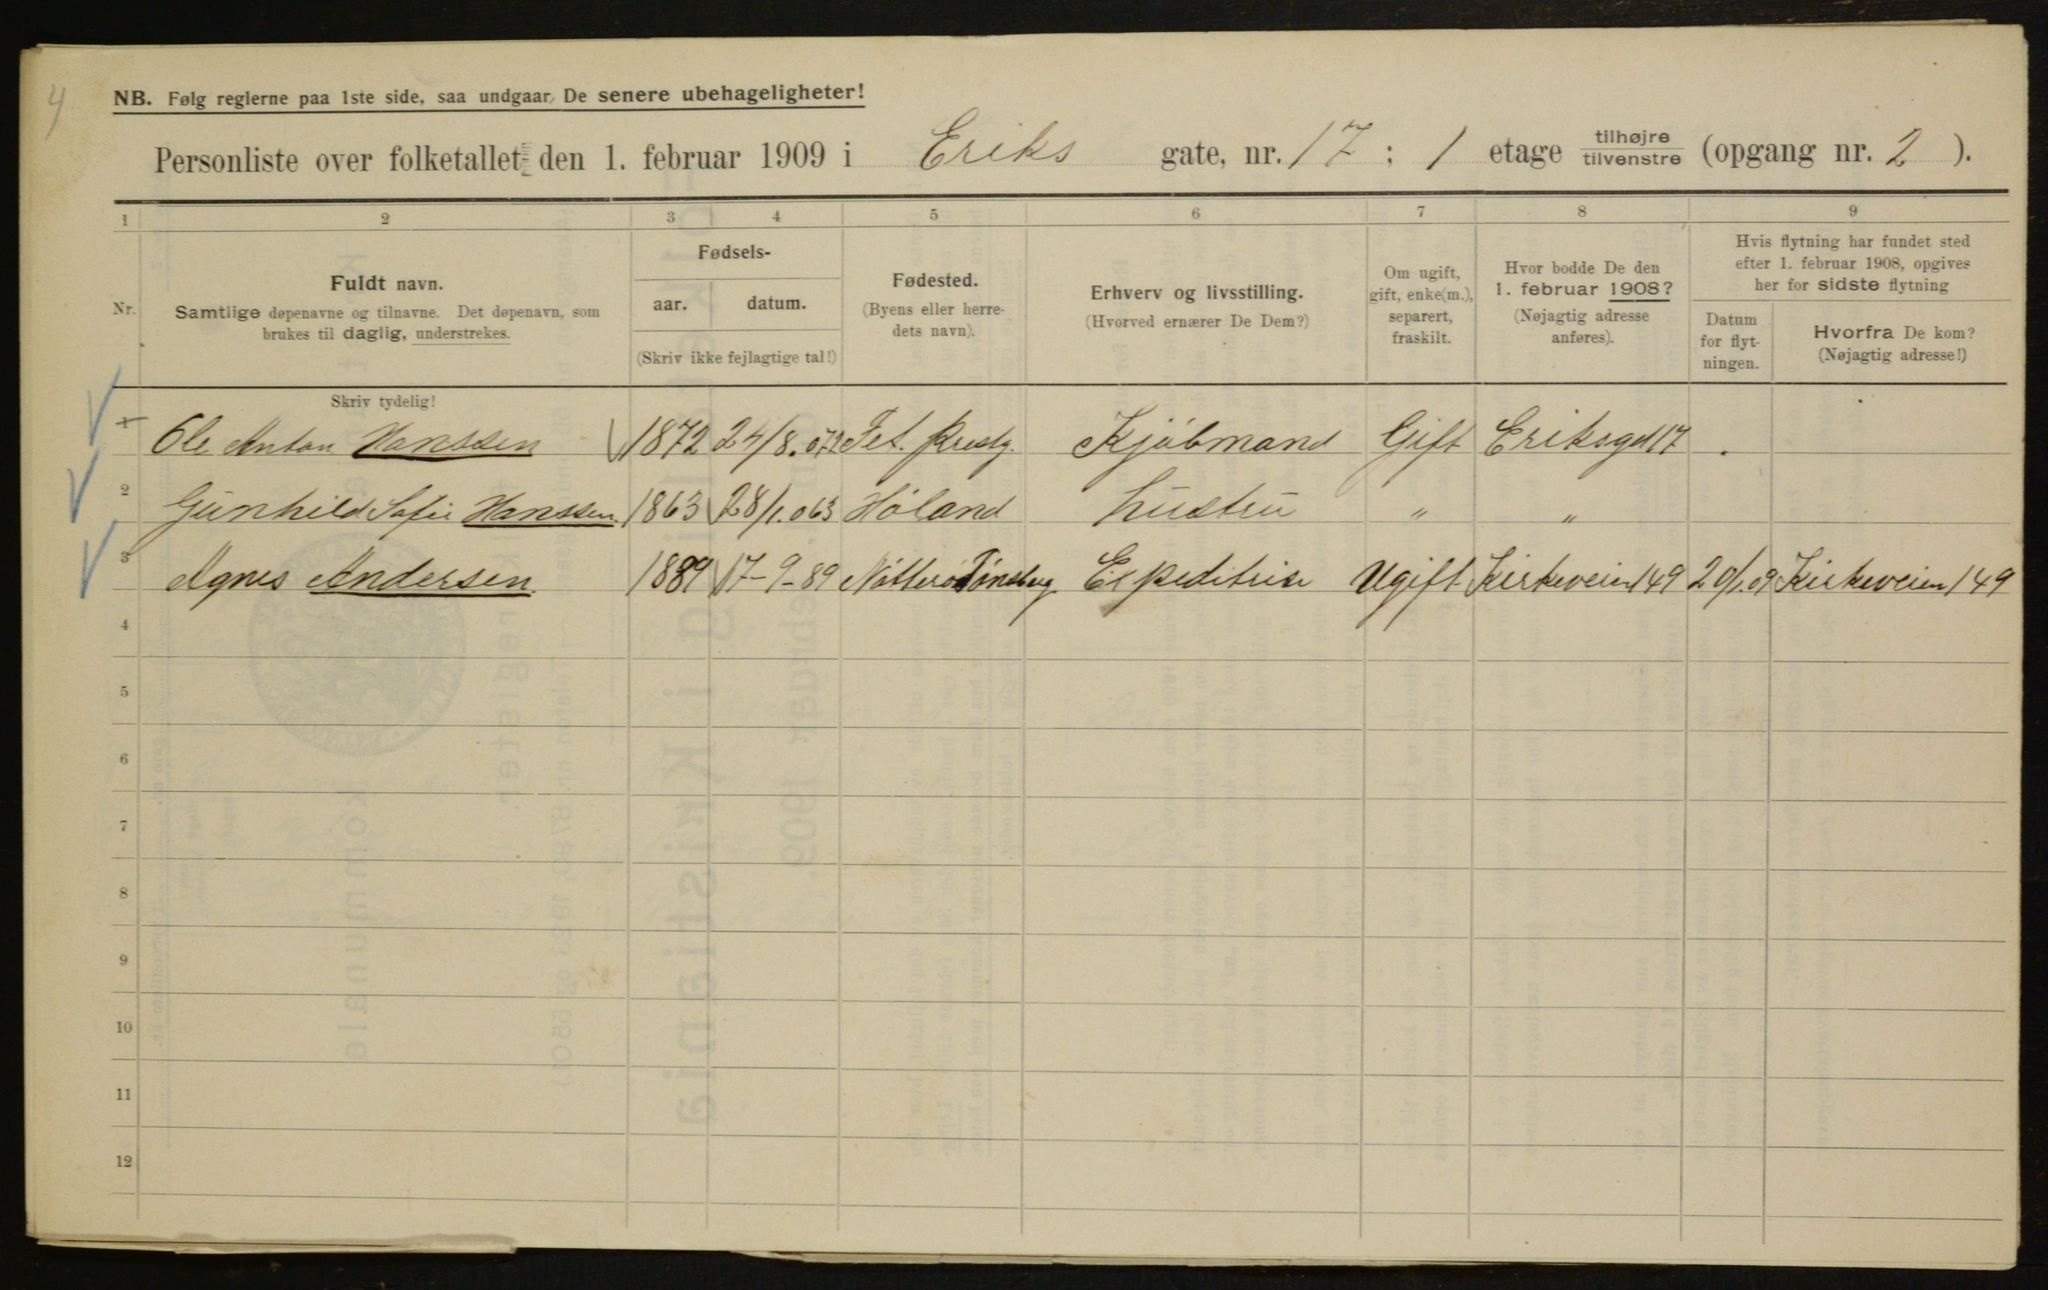 4
NB. Følg reglerne paa 1ste side, saa undgaar De senere ubehageligheter!
Personliste over folketallet den 1. februar 1909 i Eriks gate, nr. 17 ; 1 etage tilhøjre tilvenstre (opgang nr. 2 ).
1 2 3 4 5 6 7 8 9
Nr.
Fuldt navn.
Samtlige døpenavne og tilnavne. Det døpenavn, som
brukes til daglig, understrekes.
Fødsels-
aar. datum.
(Skriv ikke fejlagtige tal!)
Fødested.
(Byens eller herre-
dets navn).
Erhverv og livsstilling.
(Hvorved ernærer De Dem?)
Om ugift,
gift, enke(m.),
separert,
fraskilt.
Hvor bodde De den
1. februar 1908?
(Nøjagtig adresse
anføres).
Hvis flytning har fundet sted
efter 1. februar 1908, opgives
her for sidste flytning
Datum
for flyt-
ningen.
Hvorfra De kom?
(Nøjagtig adresse!)
Skriv tydelig!
1 Ole Anton Hanssen 1872 24/8.072 Fet. Prestg. Kjøbmand Gift Eriksgd 17
2 Gunhild Sofie Hanssen. 1863 28/1.063 Høland hustru " "
3 Agnes Andersen. 1889 17-9-89 Nøtterø Tønsberg Expeditrise Ugift Kirkeveien 149 20/1.09 Kirkeveien 149
4
5
6
7
8
9
10
11
12